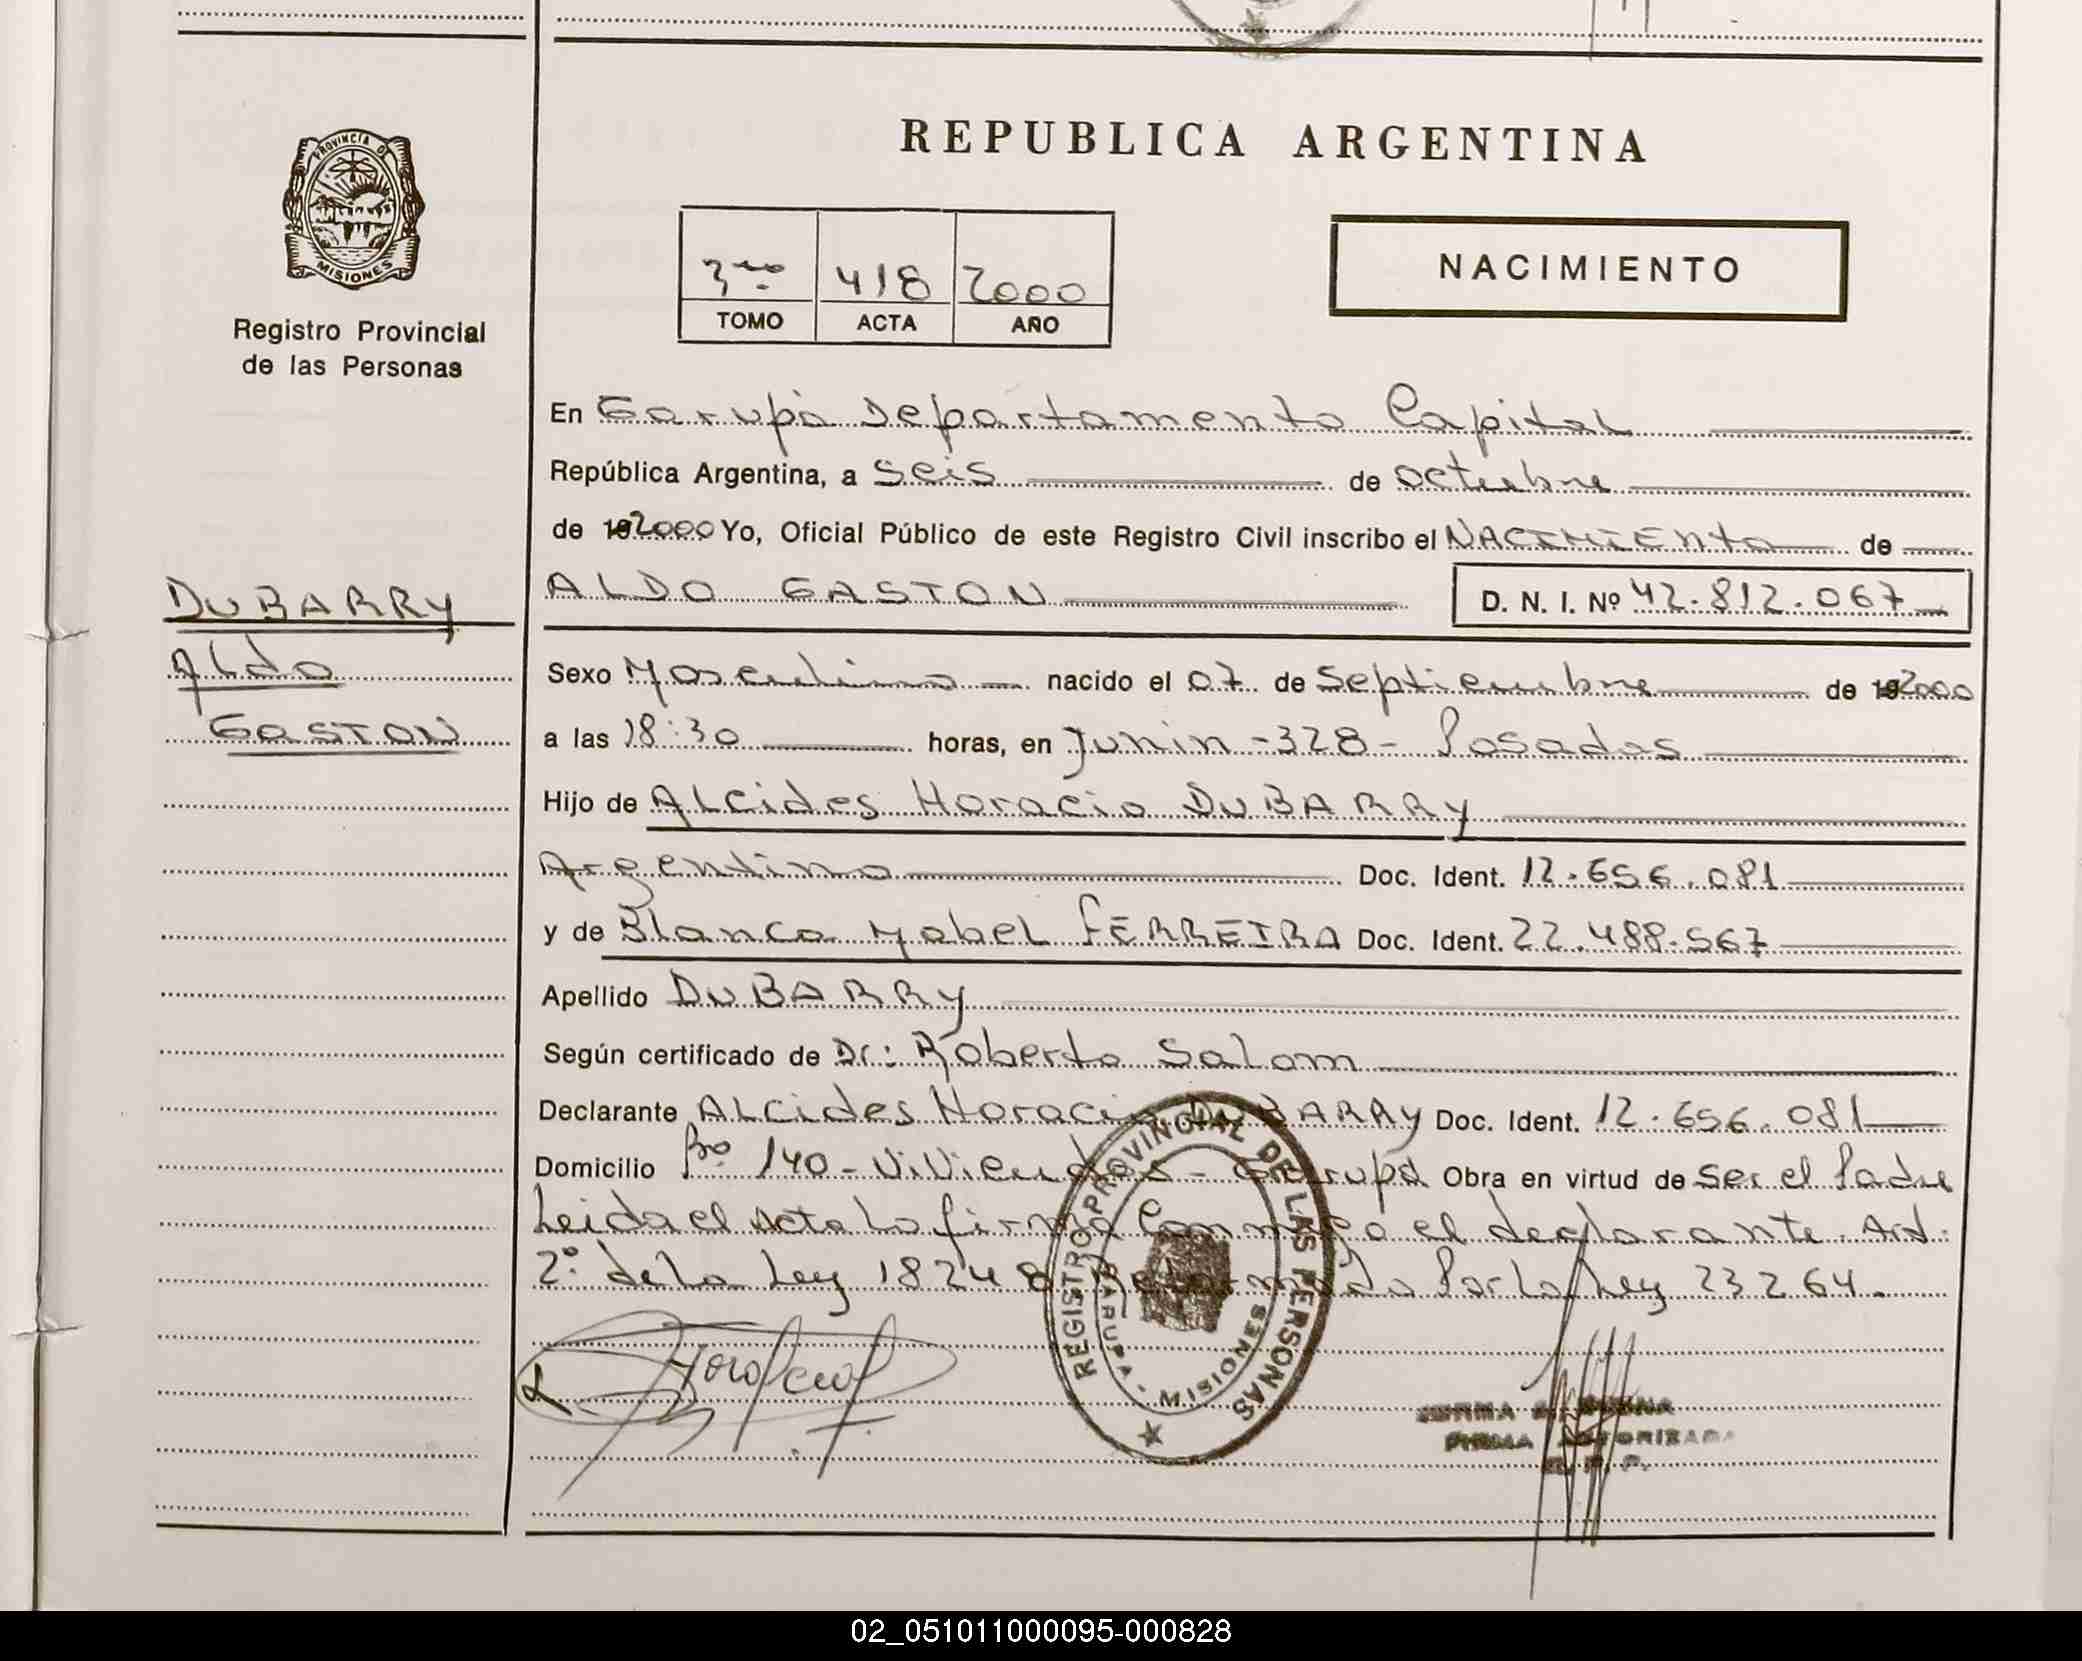 REPUBLICA ARGENTINA
PROVINCIA DE
MISIONES
Registro Provincial
de las Personas
3ro 418 2000
TOMO ACTA AÑO
NACIMIENTO
En Garupá Departamento Capital
República Argentina, a Seis de octubre
de 192000 Yo, Oficial Público de este Registro Civil inscribo el NACIMIENto de
ALDO GASTON D. N. I. Nº 42.812.067
DUBARRY
Aldo
GASTON
Sexo Masculino nacido el 07 de Septiembre de 192000
a las 18:30 horas, en Junin -328- Posadas
Hijo de ALcides Horacio DUBARRY
Argentino Doc. Ident. 12.656.081
y de Blanca Mabel FERREIRA Doc. Ident. 22.488.567
Apellido DUBARRY
Según certificado de Dr: Roberto Salom
Declarante ALcides Horacio DUBARRY Doc. Ident. 12.656.081
Domicilio Bº 140-Viviendas- Garupá Obra en virtud de Ser el Padre
Leida el Acta La firma Conmigo el declarante. Art.
2º de La Ley 18248 Reformada Por La Ley 23264.
REGISTRO PROVINCIAL DE LAS PERSONAS
GARUPA - MISIONES
FIRMA AUTORIZADA
R. P. P.
02_051011000095-000828